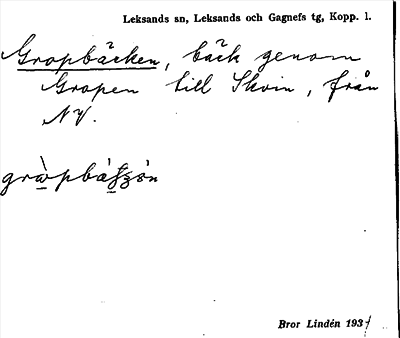 Leksands sn, Leksands och Gagnefs tg, Kopp. l.
Gropbäcken, bäck genom
Gropen till Skvin, från
NV.
Bror Lindén 1937